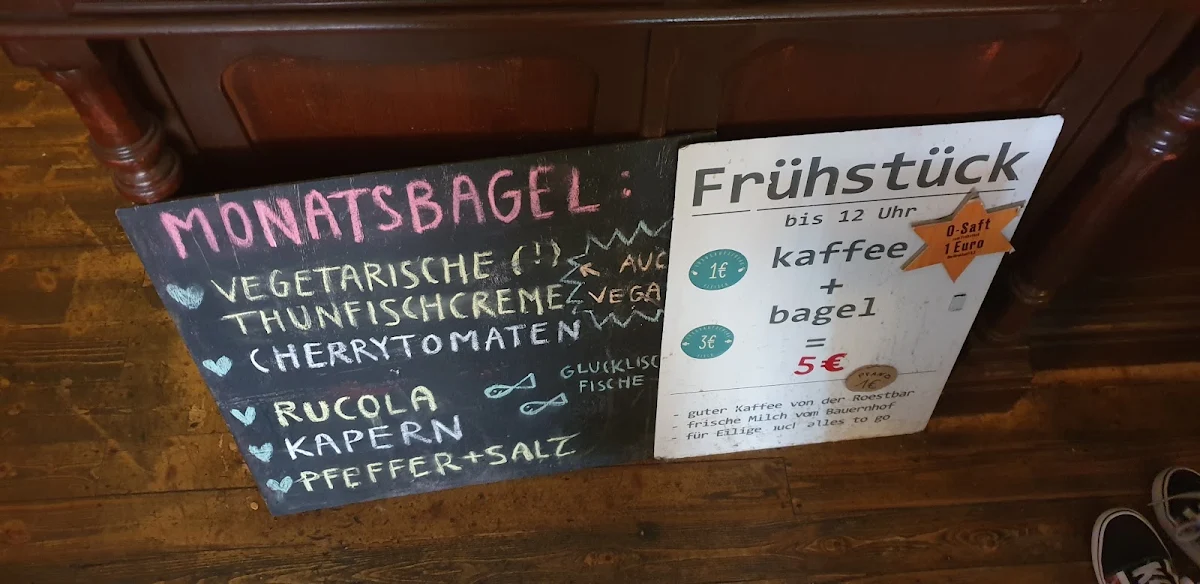 MONATSBAGEL:
VEGETARISCHE (!)
THUNFISCHCREME
AUC
VEGA
CHERRYTOMATEN
GLÜCKLISC
FISCHE
RUCOLA
KAPERN
PFEFFER+SALZ
Frühstück
bis 12 Uhr
O-Saft
1 Euro
1€
kaffee
+
bagel
3€
=
5€
PFAND
1€
- guter Kaffee von der Roestbar
- frische Milch vom Bauernhof
- für Eilige auch alles to go